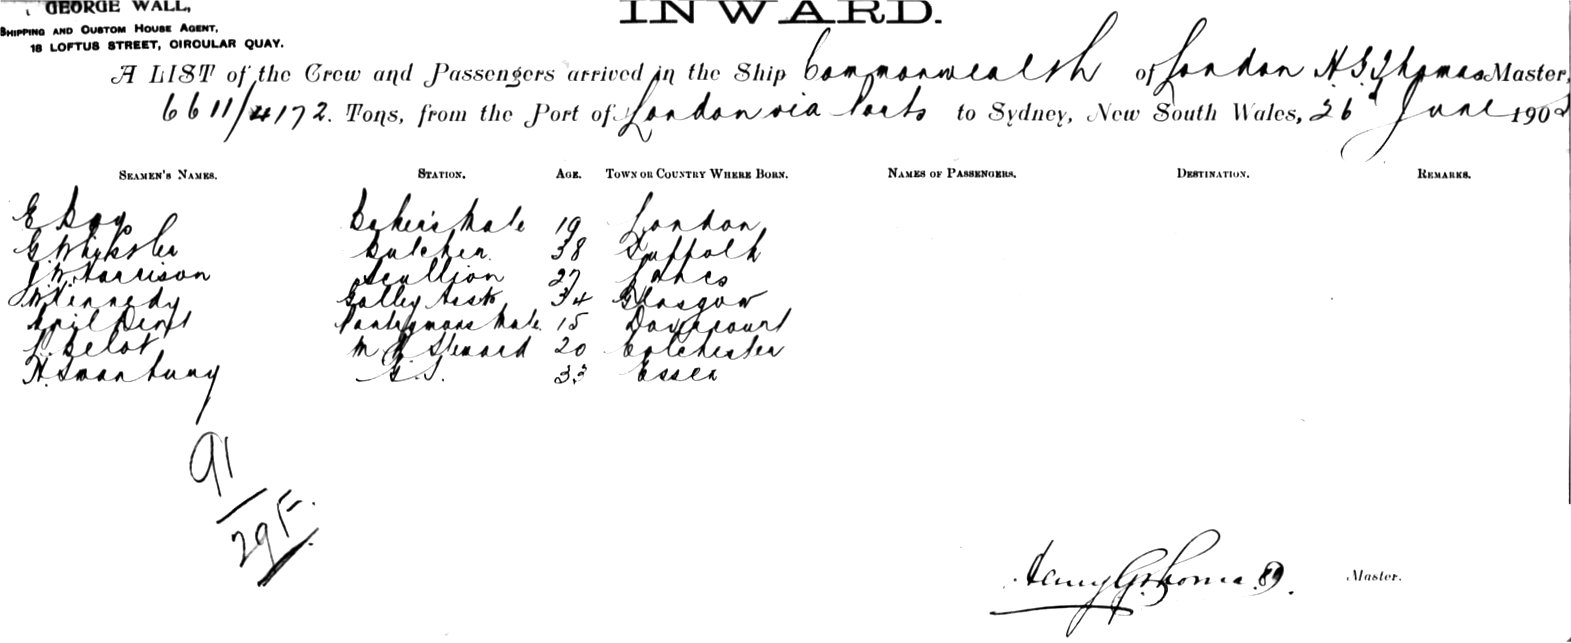 GEORGE WALL,
SHIPPING AND CUSTOM HOUSE AGENT,
18 LOFTUS STREET, CIRCULAR QUAY.
INWARD.
A LIST of the Crew and Passengers arrived in the Ship Commonwealth of London H. G. Thomas Master,
6611/4172. Tons, from the Port of London via Ports to Sydney, New South Wales, 26 June 190
SEAMEN'S NAMES. STATION. AGE. TOWN OR COUNTRY WHERE BORN. NAMES OF PASSENGERS. DESTINATION. REMARKS.
E Day Baker's Mate 19 London
G. Butcher. 38 Suffolk
J. W. Harrison Scullion 27
Kennedy Galley Asst 34 Glasgow
Pantrymans Mate. 15 Dovercourt
Steward 20 Colchester
H. G.S. 33 Essex
91
29 F.
Henry G Thomas Master.